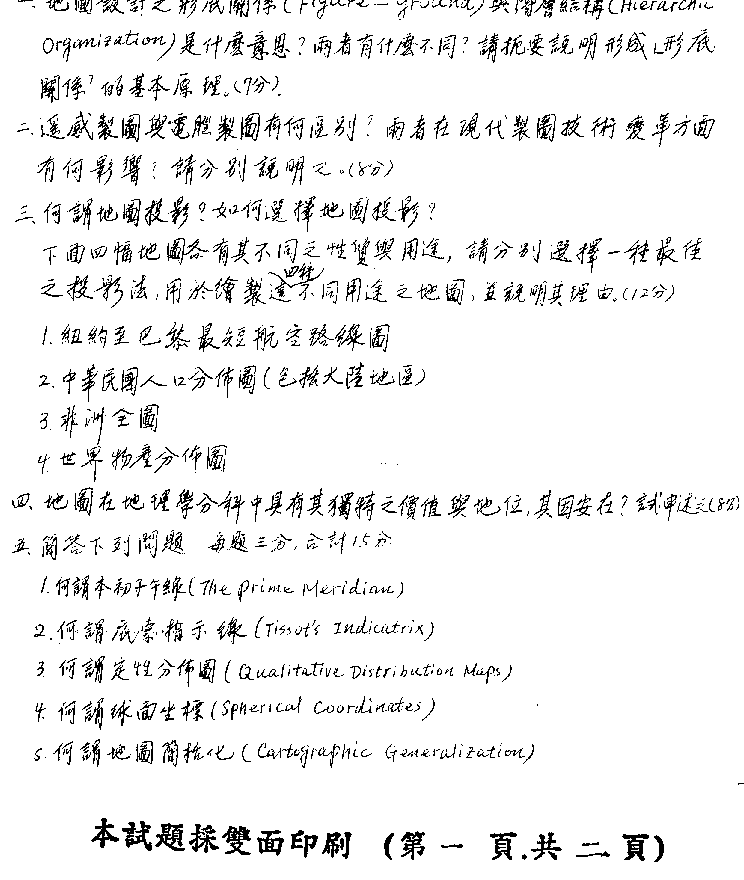 一、地圖設計之形底關係(Figure-ground)與階層結構(Hierarchic
Organization)是什麼意思?兩者有什麼不同?請扼要說明形成「形底
關係」的基本原理。(7分)
二、遙感製圖與電腦製圖有何區別?兩者在現代製圖技術變革方面
有何影響?請分別說明之。(8分)
三、何謂地圖投影?如何選擇地圖投影?
下面四幅地圖各有其不同之性質與用途,請分別選擇一種最佳
之投影法,用於繪製這四種不同用途之地圖,並說明其理由。(12分)
1.紐約至巴黎最短航空路線圖
2.中華民國人口分佈圖(包括大陸地區)
3.非洲全圖
4.世界物產分佈圖
四、地圖在地理學分科中具有其獨特之價值與地位,其因安在?試申述之(8分)
五、簡答下列問題 每題三分,合計15分
1.何謂本初子午線(The prime Meridian)
2.何謂底索指示線(Tissot's Indicatrix)
3.何謂定性分佈圖(Qualitative Distribution Maps)
4.何謂球面坐標(Spherical Coordinates)
5.何謂地圖簡括化(Cartographic Generalization)
本試題採雙面印刷 (第一頁.共二頁)